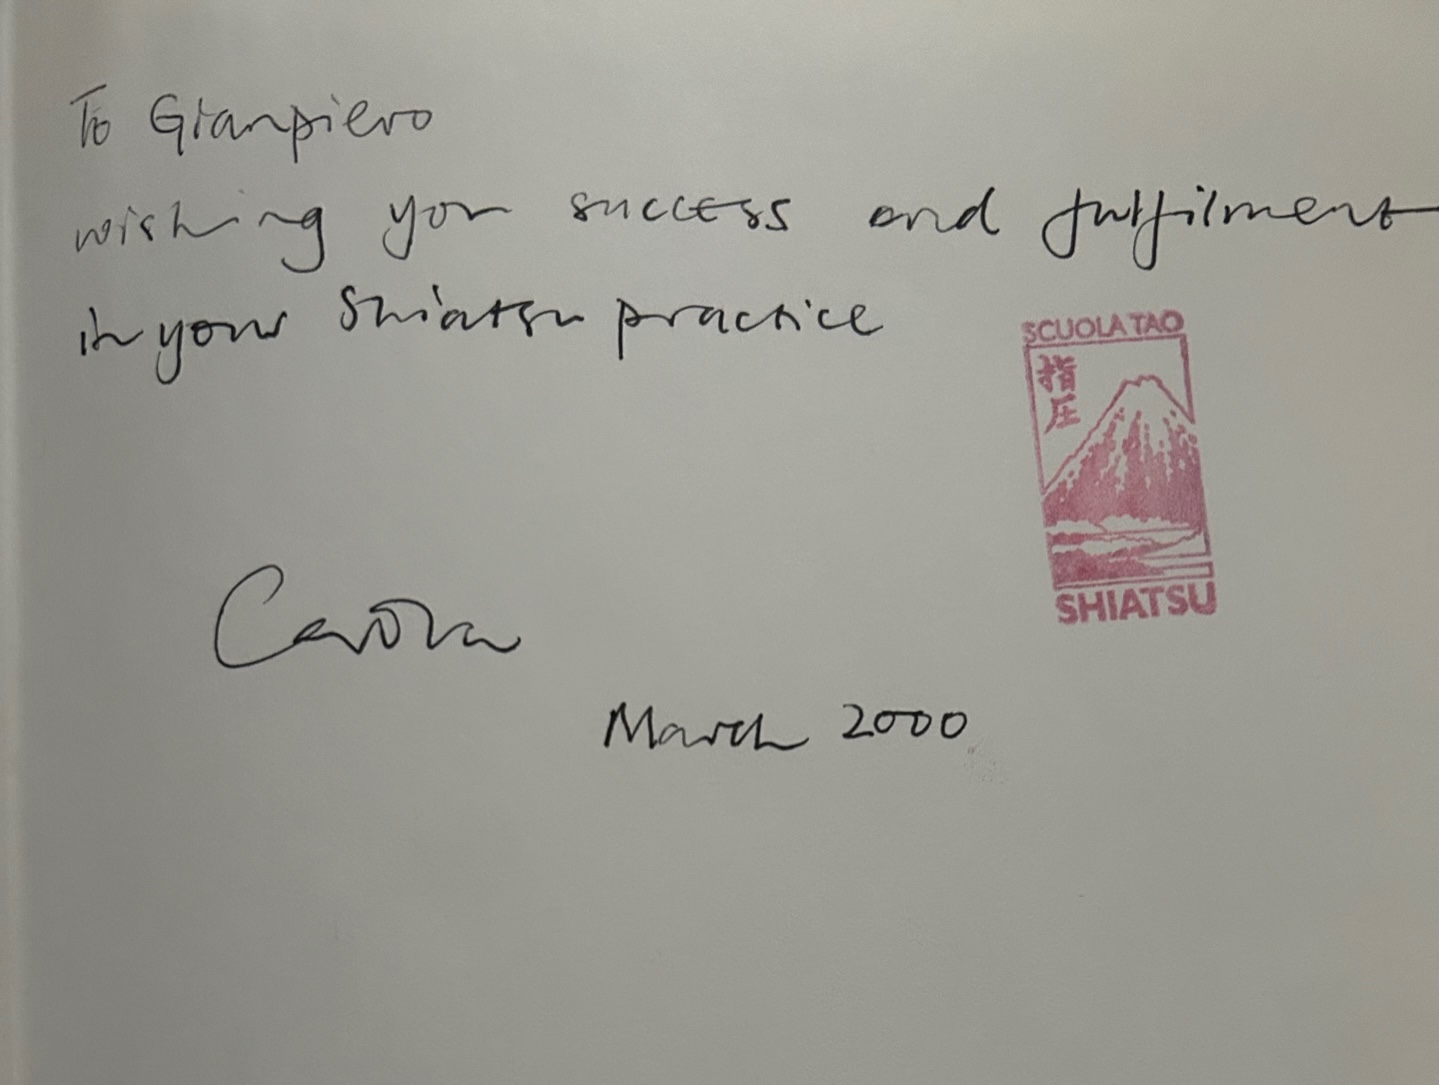 To Gianpiero
wishing you success and fulfilment
in your Shiatsu practice
SCUOLA TAO
指圧
SHIATSU
Carola
March 2000